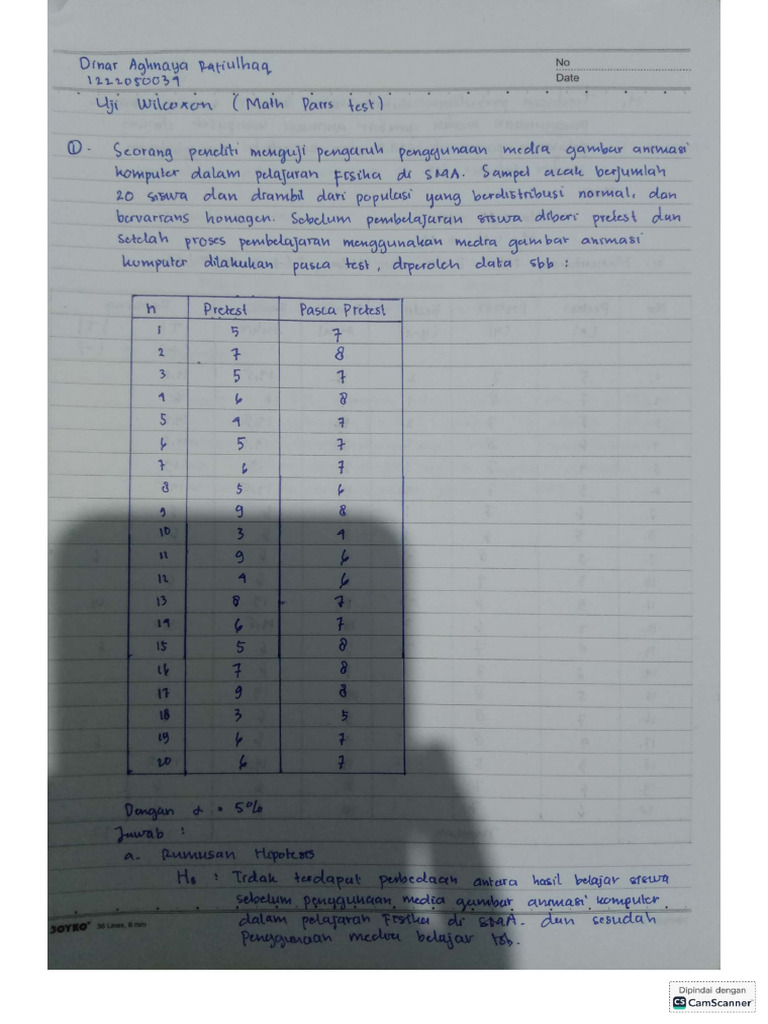 Dinar Aghnaya Rafiulhaq
No
1222050039
Date
Uji Wilcoxon (Math Pairs test)
①. Seorang peneliti menguji pengaruh penggunaan media gambar animasi
komputer dalam pelajaran Fisika di SMA. Sampel acak berjumlah
20 siswa dan diambil dari populasi yang berdistribusi normal, dan
bervarians homogen. Sebelum pembelajaran siswa diberi pretest dan
setelah proses pembelajaran menggunakan media gambar animasi
komputer dilakukan pasca test, diperoleh data sbb :
n Pretest Pasca Pretest
1 5 7
2 7 8
3 5 7
4 6 8
5 4 7
6 5 7
7 6 7
8 5 6
9 9 8
10 3 4
11 9 6
12 4 6
13 8 7
14 6 7
15 5 8
16 7 8
17 9 8
18 3 5
19 6 7
20 6 7
Dengan α = 5%
Jawab :
a. Rumusan Hipotesis
H₀ : Tidak terdapat perbedaan antara hasil belajar siswa
sebelum penggunaan media gambar animasi komputer
dalam pelajaran Fisika di SMA. dan sesudah
penggunaan media belajar tsb.
JOYKO 36 Lines, 8 mm
Dipindai dengan
CS CamScanner